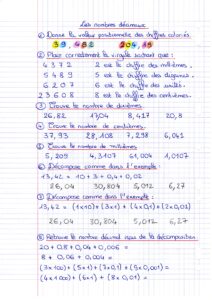 Les nombres décimaux
① Donne la valeur positionnelle des chiffres coloriés.
39,452 204,85
② Place correctement la virgule sachant que :
4372 2 est le chiffre des millièmes.
5489 5 est le chiffre des dizaines.
6207 6 est le chiffre des unités.
23608 8 est le chiffre des centièmes.
③ Trouve le nombre de dixièmes.
26,82 17,04 8,417 20,8
④ Trouve le nombre de centièmes.
37,93 28,108 7,298 6,041
⑤ Trouve le nombre de millièmes.
5,209 4,3107 61,004 1,0107
⑥ Décompose comme dans l'exemple :
13,42 = 10 + 3 + 0,4 + 0,02
26,04 30,804 5,012 6,27
⑦ Décompose comme dans l'exemple :
13,42 = (1x10) + (3x1) + (4x0,1) + (2x0,01)
26,04 30,804 5,012 6,27
⑧ Retrouve le nombre décimal issu de la décomposition
20 + 0,8 + 0,04 + 0,006 =
8 + 0,06 + 0,004 =
(3x100) + (5x1) + (7x0,1) + (5x0,001) =
(4x100) + (6x1) + (8x0,01) =